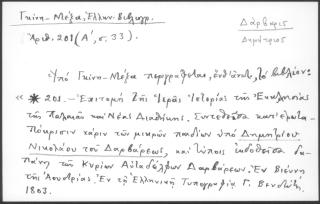 Γκίνη-Μέξα, Ἑλλην. Βιβλιογρ.
Ἀριθ. 201 (Α΄, σ. 33).
Δάρβαρις
Δημήτριος
Ὑπό Γκίνη-Μέξα περιγράφεται, τό βιβλίον:
« ✱ 201.- Ἐπιτομή τῆς Ἱερᾶς Ἱστορίας τῆς Ἐκκλησίας
τῆς Παλαιᾶς καί Νέας Διαθήκης. Συντεθεῖσα κατ' ἐρωτα-
πόκρισιν χάριν τῶν μικρῶν παιδίων ὑπό Δημητρίου
Νικολάου τοῦ Δαρβάρεως, καί τύποις ἐκδοθεῖσα δα-
πάνῃ τῶν Κυρίων Αὐταδέλφων Δαρβάρεων. Ἐν Βιέννῃ
τῆς Ἀουστρίας. Ἐν τῇ Ἑλληνικῇ Τυπογραφίᾳ Γ. Βενδώτη.
1803.